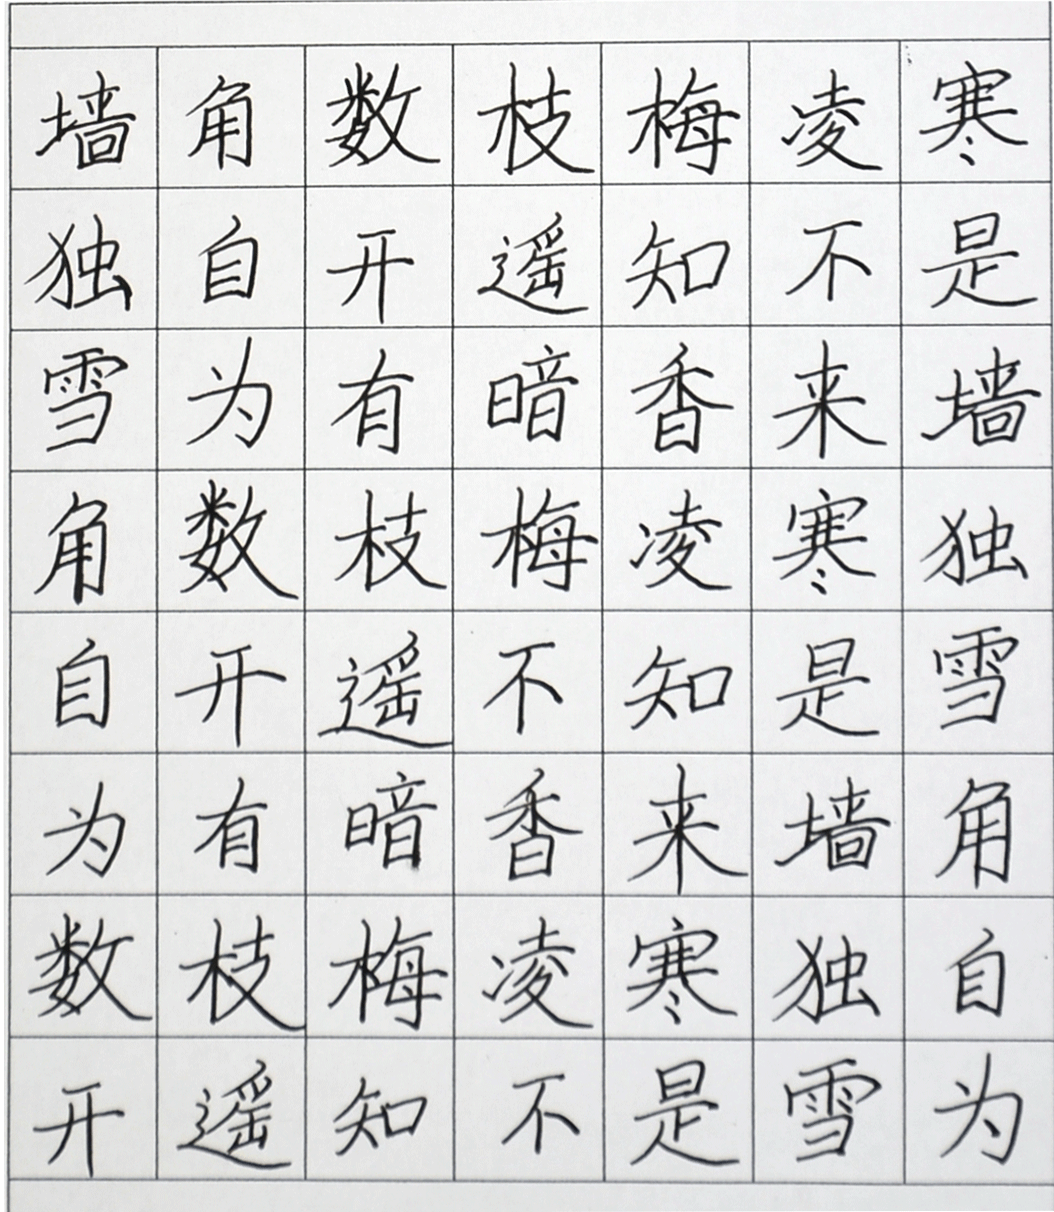 墙角数枝梅凌寒
独自开遥知不是
雪为有暗香来墙
角数枝梅凌寒独
自开遥不知是雪
为有暗香来墙角
数枝梅凌寒独自
开遥知不是雪为